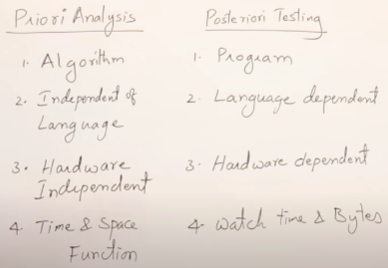 Priori Analysis
1. Algorithm
2. Independent of
Language
3. Hardware
Independent
4. Time & Space
Function
Posteriori Testing
1. Program
2. Language dependent
3. Hardware dependent
4. Watch time & Bytes